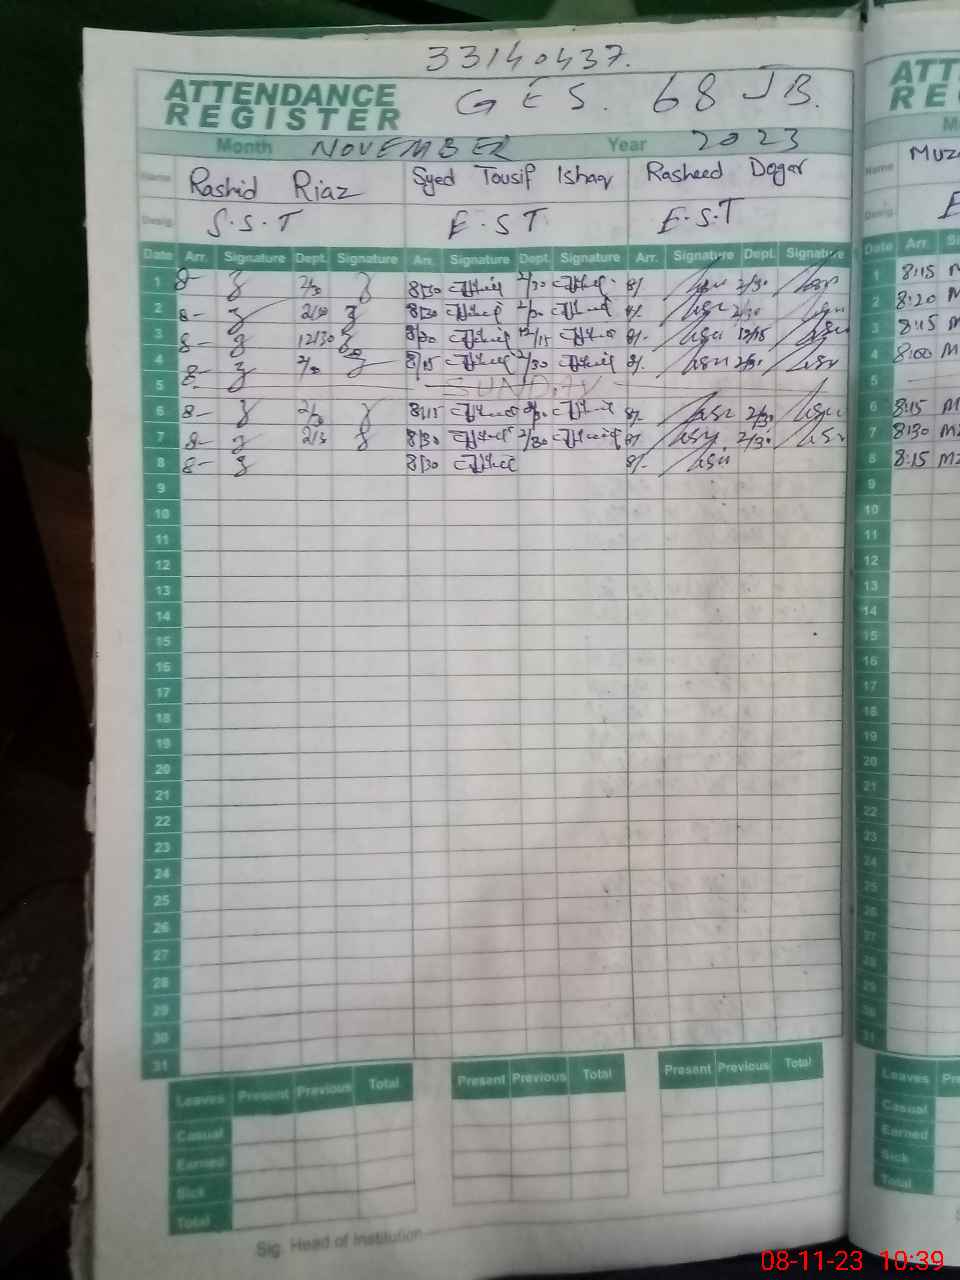 33140437.
ATTENDANCE REGISTER GES. 68 JB.
Month NOVEMBER Year 2023
Name Rashid Riaz Syed Tousif Ishaq Rasheed Dogar
Desig. S.S.T E.ST E.S.T
Date Arr. Signature Dept. Signature Arr. Signature Dept. Signature Arr. Signature Dept. Signature
1 8- 2/30 8/30 2/30 8/- 2/30
2 8- 8/30 8/- 2/30
3 8- 12/30 8/30 12/15 8/- 12/15
4 8- 8/15 2/30 8/- 2/30
5 SUNDAY
6 8- 2/30 8/15 8/- 2/30
7 8- 2/3 8/30 2/30 8/- 2/30
8 8- 8/30 8/-
9
10
11
12
13
14
15
16
17
18
19
20
21
22
23
24
25
26
27
28
29
30
31
Leaves Present Previous Total Present Previous Total Present Previous Total
Casual
Earned
Sick
Total
Sig. Head of Institution
ATT
RE
Name MUZ
Desig. E
Date Arr.
1 8:15 M
2 8:20 M
3 8:15 M
4 8:00 M
5
6 8:15 M
7 8:30 MZ
8 8:15 MZ
9
10
11
12
13
14
15
16
17
18
19
20
21
22
23
24
25
26
27
28
29
30
31
Leaves
Casual
Earned
Sick
Total
08-11-23 10:39